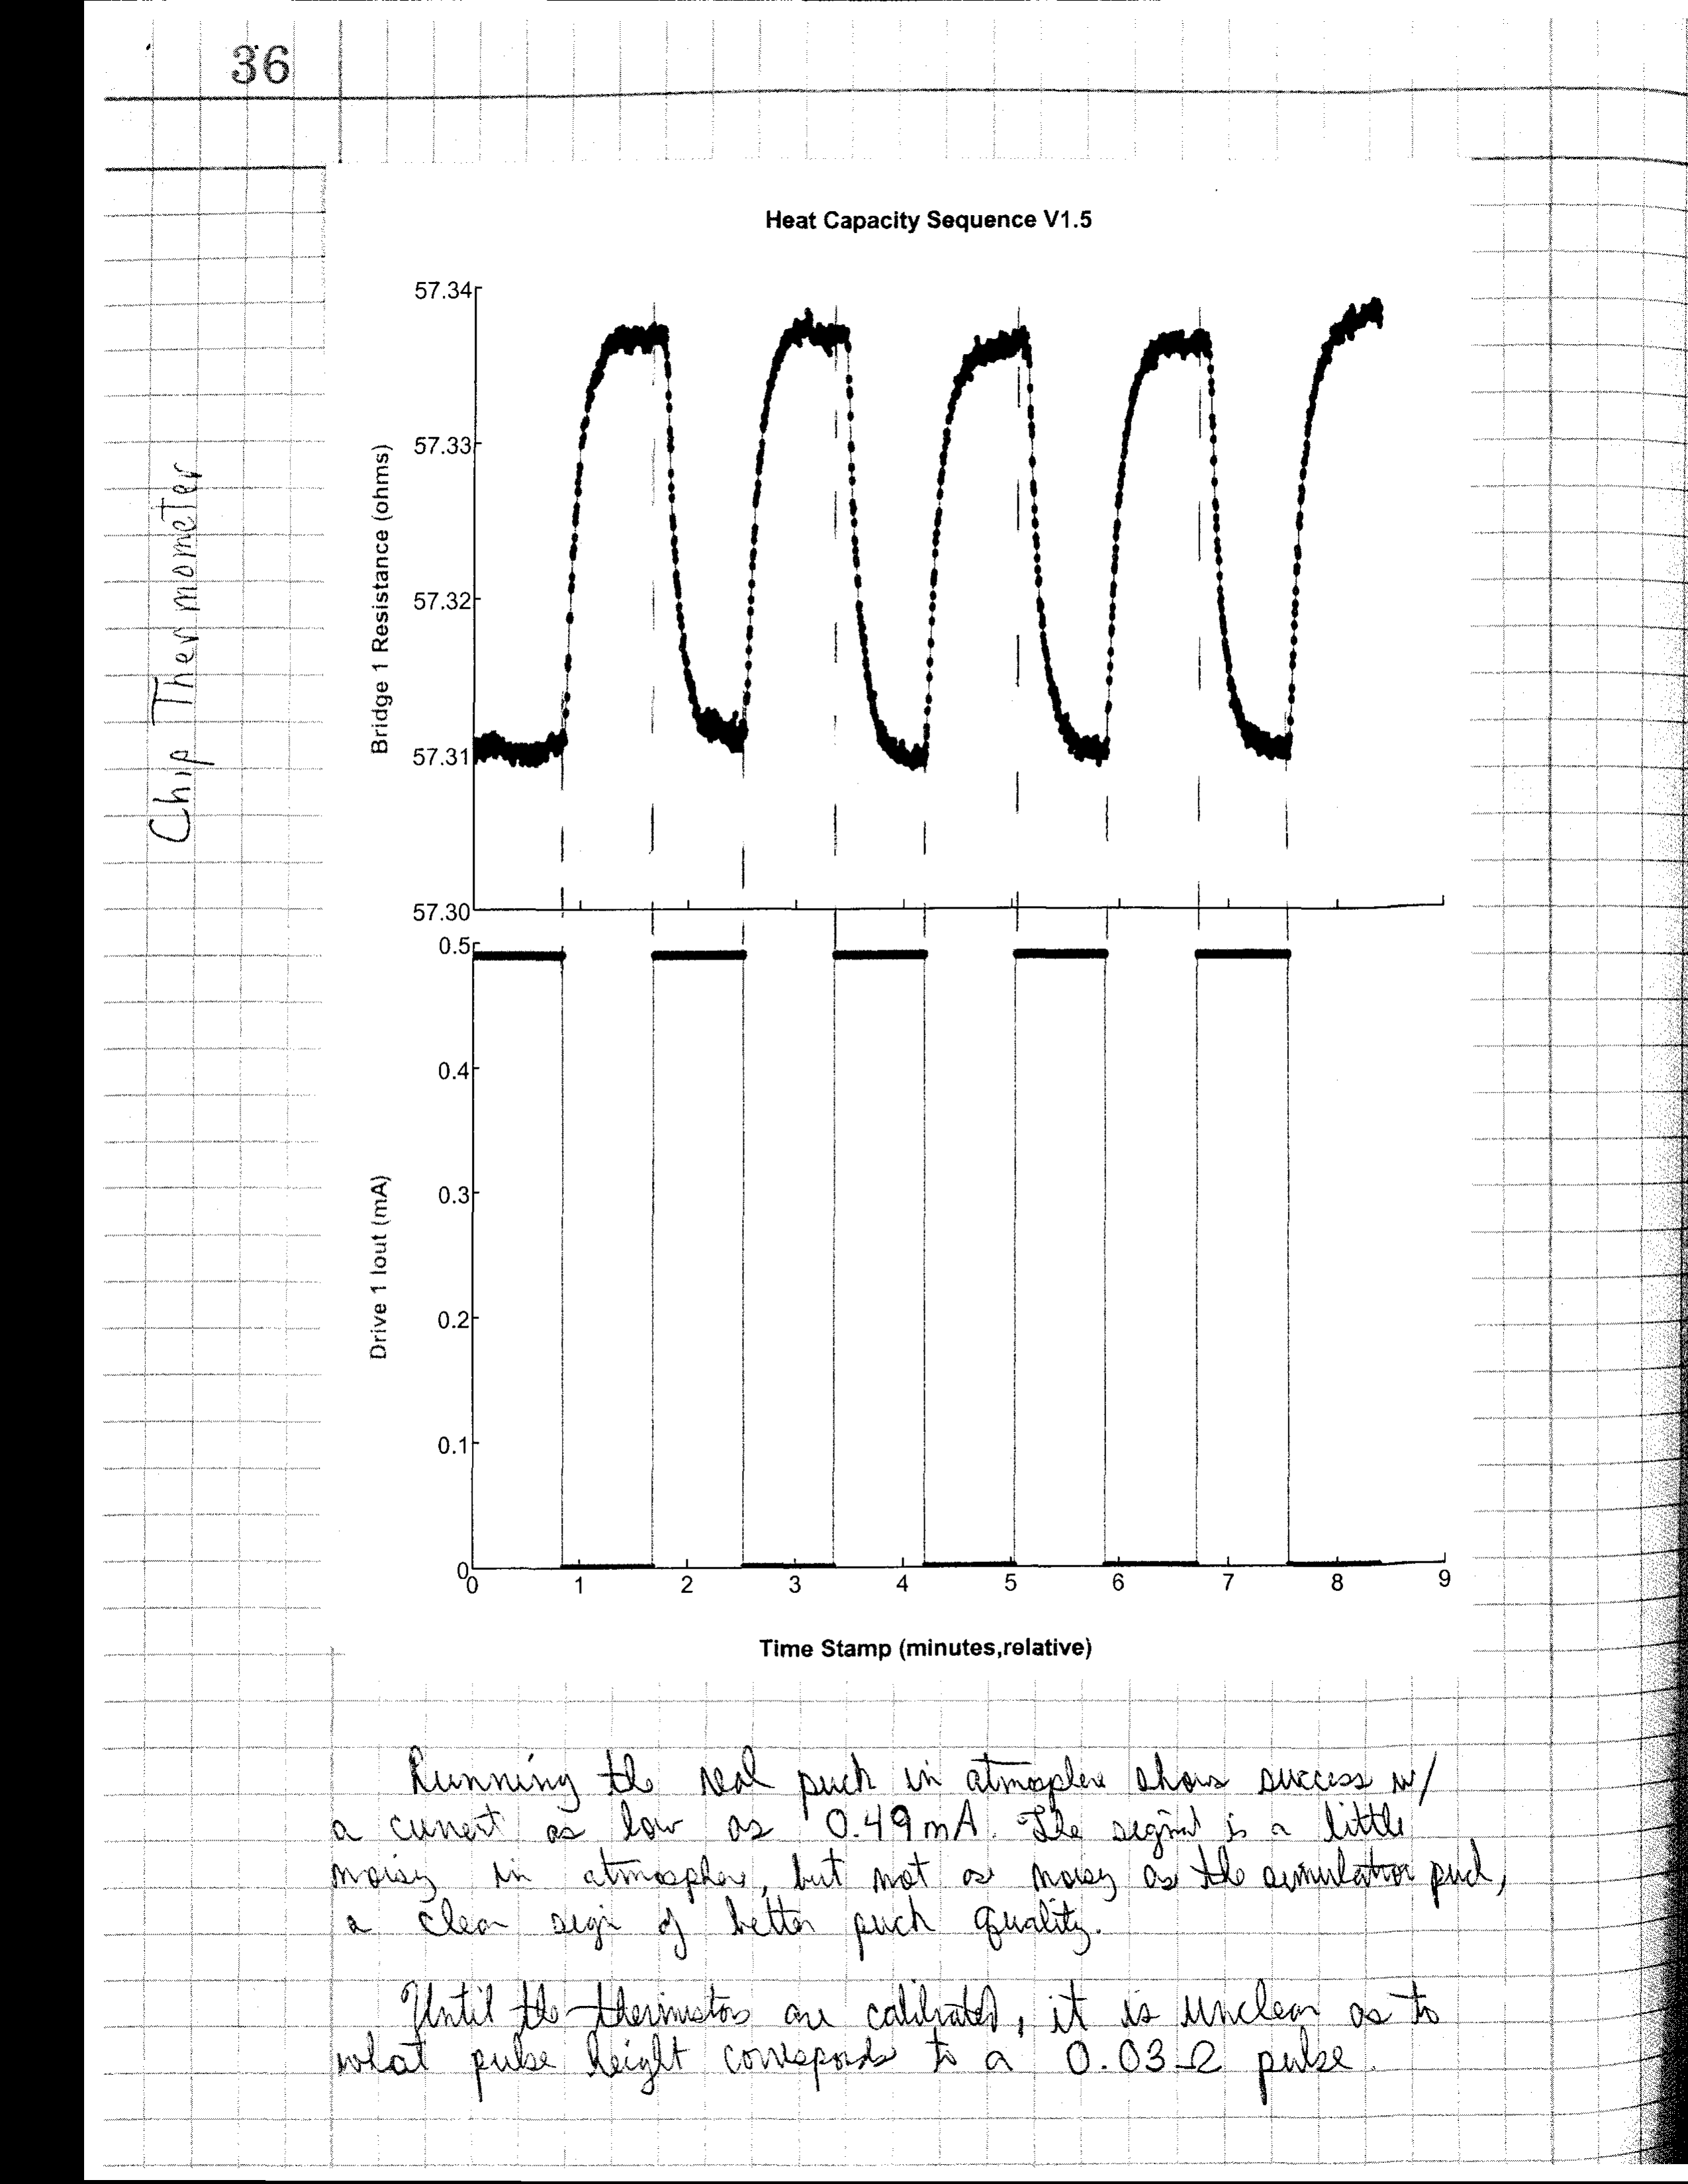 36
Heat Capacity Sequence V1.5
Chip Thermometer
Bridge 1 Resistance (ohms)
57.34
57.33
57.32
57.31
57.30
Drive 1 Iout (mA)
0.5
0.4
0.3
0.2
0.1
0
0 1 2 3 4 5 6 7 8 9
Time Stamp (minutes,relative)
Running the real puck in atmosphere shows success w/
a current as low as 0.49mA. The signal is a little
noisy in atmosphere, but not as noisy as the simulator puck,
a clear sign of better puck quality.
Until the thermistors are calibrated, it is unclear as to
what pulse height corresponds to a 0.03Ω pulse.